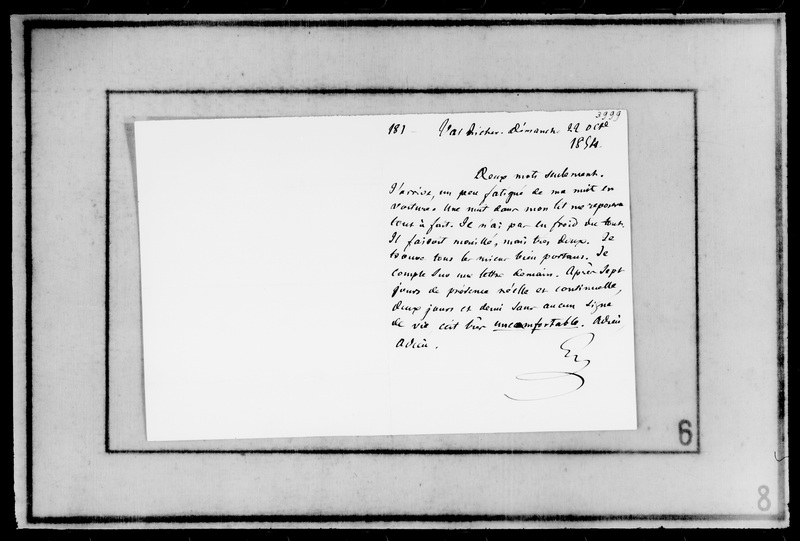 3999
181 Val Richer. Dimanche 22 octe
1854.
Deux mots seulement.
J'arrive, un peu fatigué de ma nuit en
voiture. Une nuit dans mon lit me reposera
tout à fait. Je n'ai pas eu froid du tout.
Il faisoit mouillé, mais très doux. Je
trouve tous les miens bien portans. Je
compte sur une lettre demain. Après sept
jours de présence réelle et continuelle,
deux jours et demi sans aucun signe
de vie c'est bien uncomfortable. Adieu
Adieu.
6
8